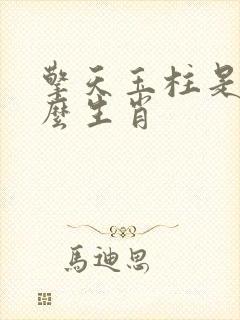 擎天玉柱是
麼生肖
馬迪思